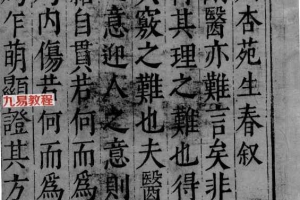 杏苑生春叙
醫亦難言矣非
得其理之難也得
其竅之難也夫醫
意迎人之意則
䋲自貫若何而
內傷若何而為
乍萌顯證其方
九易教程